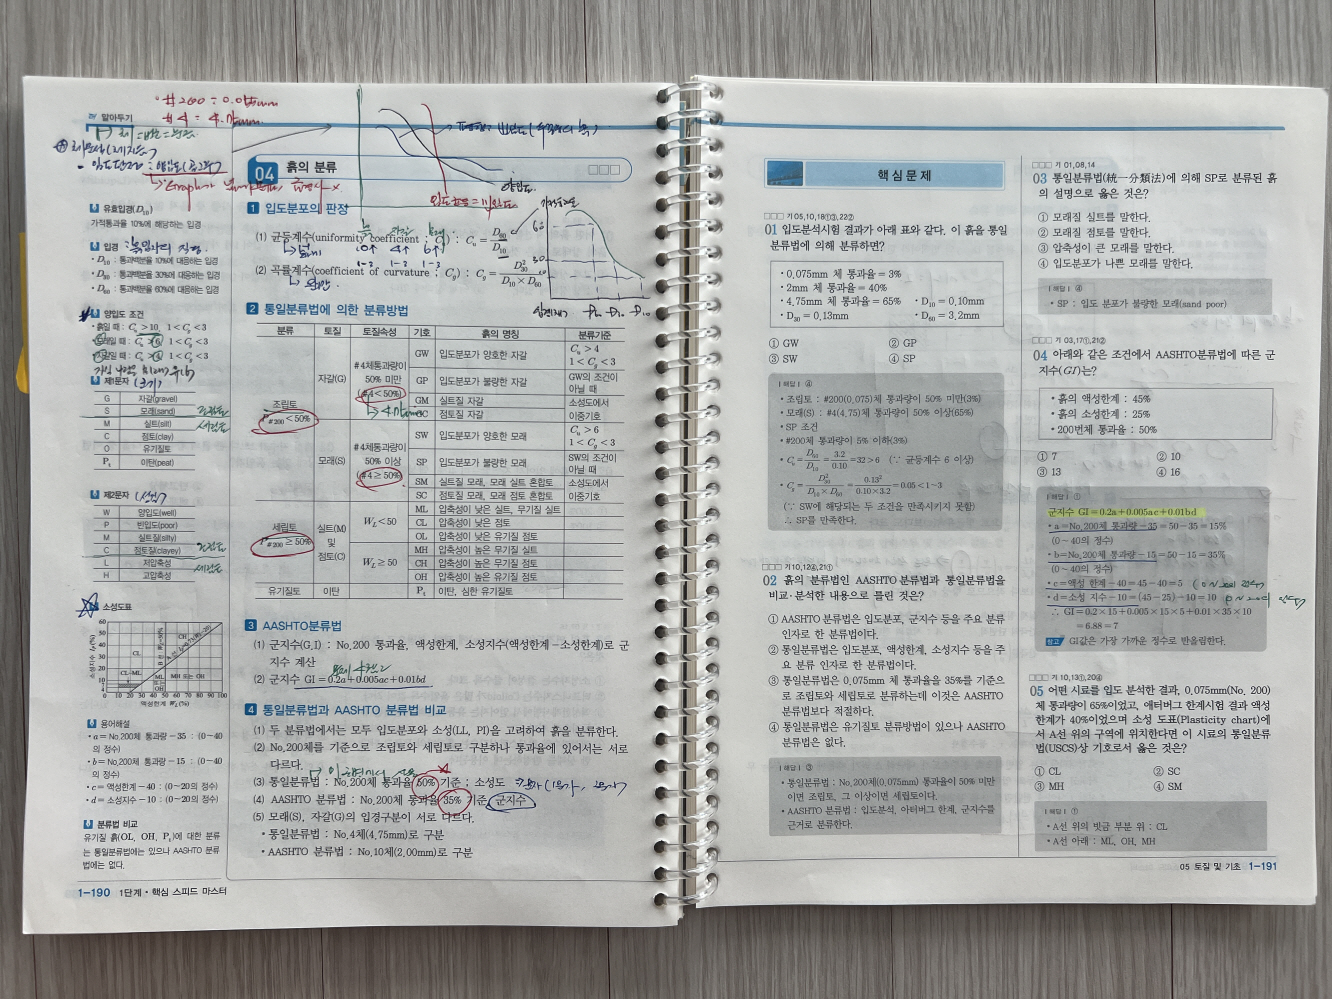 알아두기
#200 = 0.075mm
#4 = 4.75mm
04 흙의 분류
유효입경(D10)
가적통과율 10%에 해당하는 입경
입경
• D10 : 통과백분율 10%에 대응하는 입경
• D30 : 통과백분율 30%에 대응하는 입경
• D60 : 통과백분율 60%에 대응하는 입경
양입도 조건
• 흙일 때 : Cu > 10, 1 < Cg < 3
• 모래일 때 : Cu > 6, 1 < Cg < 3
• 자갈일 때 : Cu > 4, 1 < Cg < 3
제1문자 (크기)
G 자갈(gravel)
S 모래(sand)
M 실트(silt)
C 점토(clay)
O 유기질토
Pt 이탄(peat)
제2문자
W 양입도(well)
P 빈입도(poor)
M 실트질(silty)
C 점토질(clayey)
L 저압축성
H 고압축성
소성도표
소성지수 Ip(%)
60
50
40
30
20
10
0 10 20 30 40 50 60 70 80 90 100
액성한계 WL(%)
CL
CH
CL-ML
용어해설
• a = No.200체 통과량-35 : (0~40의 정수)
• b = No.200체 통과량-15 : (0~40의 정수)
• c = 액성한계-40 : (0~20의 정수)
• d = 소성지수-10 : (0~20의 정수)
분류법 비교
유기질 흙(OL, OH, Pt)에 대한 분류
는 통일분류법에는 있으나 AASHTO 분류
법에는 없다.
1-190 1단계 • 핵심 스피드 마스터
1 입도분포의 판정
(1) 균등계수(uniformity coefficient : Cu) : Cu = D60/D10
(2) 곡률계수(coefficient of curvature : Cg) : Cg = D30²/(D10 × D60)
2 통일분류법에 의한 분류방법
분류 토질 토질속성 기호 흙의 명칭 분류기준
조립토 P#200 < 50%
자갈(G) #4체통과량이 50% 미만 (#4 < 50%)
GW 입도분포가 양호한 자갈 Cu > 4 1 < Cg < 3
GP 입도분포가 불량한 자갈 GW의 조건이 아닐 때
GM 실트질 자갈 소성도에서
GC 점토질 자갈 이중기호
모래(S) #4체통과량이 50% 이상 (#4 ≥ 50%)
SW 입도분포가 양호한 모래 Cu > 6 1 < Cg < 3
SP 입도분포가 불량한 모래 SW의 조건이 아닐 때
SM 실트질 모래, 모래 실트 혼합토 소성도에서
SC 점토질 모래, 모래 점토 혼합토 이중기호
세립토 P#200 ≥ 50% 실트(M) 및 점토(C)
WL < 50
ML 압축성이 낮은 실트, 무기질 실트
CL 압축성이 낮은 점토
OL 압축성이 낮은 유기질 점토
WL ≥ 50
MH 압축성이 높은 무기질 실트
CH 압축성이 높은 무기질 점토
OH 압축성이 높은 유기질 점토
유기질토 이탄 Pt 이탄, 심한 유기질토
3 AASHTO분류법
(1) 군지수(G.I) : No.200 통과율, 액성한계, 소성지수(액성한계-소성한계)로 군
지수 계산
(2) 군지수 GI = 0.2a + 0.005ac + 0.01bd
4 통일분류법과 AASHTO 분류법 비교
(1) 두 분류법에서는 모두 입도분포와 소성(LL, PI)을 고려하여 흙을 분류한다.
(2) No.200체를 기준으로 조립토와 세립토로 구분하나 통과율에 있어서는 서로
다르다.
(3) 통일분류법 : No.200체 통과율 50% 기준 : 소성도
(4) AASHTO 분류법 : No.200체 통과율 35% 기준 군지수
(5) 모래(S), 자갈(G)의 입경구분이 서로 다르다.
• 통일분류법 : No.4체(4.75mm)로 구분
• AASHTO 분류법 : No.10체(2.00mm)로 구분
핵심문제
□□□ 기05,10,18①③,22②
01 입도분석시험 결과가 아래 표와 같다. 이 흙을 통일
분류법에 의해 분류하면?
• 0.075mm 체 통과율 = 3%
• 2mm 체 통과율 = 40%
• 4.75mm 체 통과율 = 65% • D10 = 0.10mm
• D30 = 0.13mm • D60 = 3.2mm
① GW ② GP
③ SW ④ SP
[해답] ④
• 조립토 : #200(0.075)체 통과량이 50% 미만(3%)
• 모래(S) : #4(4.75)체 통과량이 50% 이상(65%)
• SP 조건
• #200체 통과량이 5% 이하(3%)
• Cu = D60/D10 = 3.2/0.10 = 32 > 6 (∵ 균등계수 6 이상)
• Cg = D30²/(D10 × D60) = 0.13²/(0.10×3.2) = 0.05 < 1~3
(∵ SW에 해당되는 두 조건을 만족시키지 못함)
∴ SP를 만족한다.
□□□ 기10,12④,21①
02 흙의 분류법인 AASHTO 분류법과 통일분류법을
비교·분석한 내용으로 틀린 것은?
① AASHTO 분류법은 입도분포, 군지수 등을 주요 분류
인자로 한 분류법이다.
② 통일분류법은 입도분포, 액성한계, 소성지수 등을 주
요 분류 인자로 한 분류법이다.
③ 통일분류법은 0.075mm 체 통과율을 35%를 기준으
로 조립토와 세립토로 분류하는데 이것은 AASHTO
분류법보다 적절하다.
④ 통일분류법은 유기질토 분류방법이 있으나 AASHTO
분류법은 없다.
[해답] ③
• 통일분류법 : No.200체(0.075mm) 통과율이 50% 미만
이면 조립토, 그 이상이면 세립토이다.
• AASHTO 분류법 : 입도분석, 아터버그 한계, 군지수를
근거로 분류한다.
□□□ 기01,08,14
03 통일분류법(統一分類法)에 의해 SP로 분류된 흙
의 설명으로 옳은 것은?
① 모래질 실트를 말한다.
② 모래질 점토를 말한다.
③ 압축성이 큰 모래를 말한다.
④ 입도분포가 나쁜 모래를 말한다.
[해답] ④
• SP : 입도 분포가 불량한 모래(sand poor)
□□□ 기03,17①,21②
04 아래와 같은 조건에서 AASHTO분류법에 따른 군
지수(GI)는?
• 흙의 액성한계 : 45%
• 흙의 소성한계 : 25%
• 200번체 통과율 : 50%
① 7 ② 10
③ 13 ④ 16
[해답] ①
군지수 GI = 0.2a + 0.005ac + 0.01bd
• a = No.200체 통과량-35 = 50-35 = 15%
(0~40의 정수)
• b = No.200체 통과량-15 = 50-15 = 35%
(0~40의 정수)
• c = 액성 한계-40 = 45-40 = 5
• d = 소성 지수-10 = (45-25)-10 = 10
∴ GI = 0.2×15+0.005×15×5+0.01×35×10
= 6.88 = 7
참고 GI값은 가장 가까운 정수로 반올림한다.
□□□ 기10,13①,20④
05 어떤 시료를 입도 분석한 결과, 0.075mm(No. 200)
체 통과량이 65%이었고, 애터버그 한계시험 결과 액성
한계가 40%이었으며 소성 도표(Plasticity chart)에
서 A선 위의 구역에 위치한다면 이 시료의 통일분류
법(USCS)상 기호로서 옳은 것은?
① CL ② SC
③ MH ④ SM
[해답] ①
• A선 위의 빗금 부분 위 : CL
• A선 아래 : ML, OH, MH
05 토질 및 기초 1-191